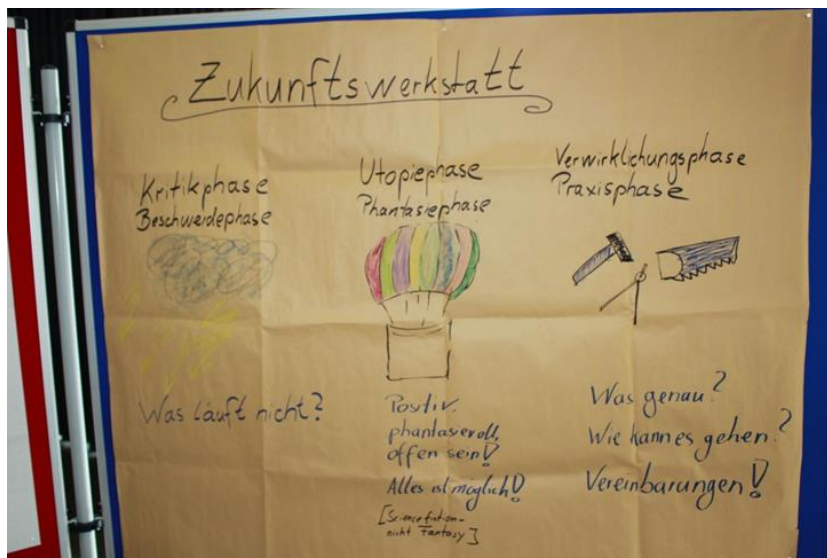 Zukunftswerkstatt
Kritikphase
Beschweidephase
Was läuft nicht?
Utopiephase
Phantasiephase
Positiv,
phantasievoll,
offen sein!
Alles ist möglich!
[Sciencefiction-
nicht Fantasy]
Verwirklichungsphase
Praxisphase
Was genau?
Wie kann es gehen?
Vereinbarungen!